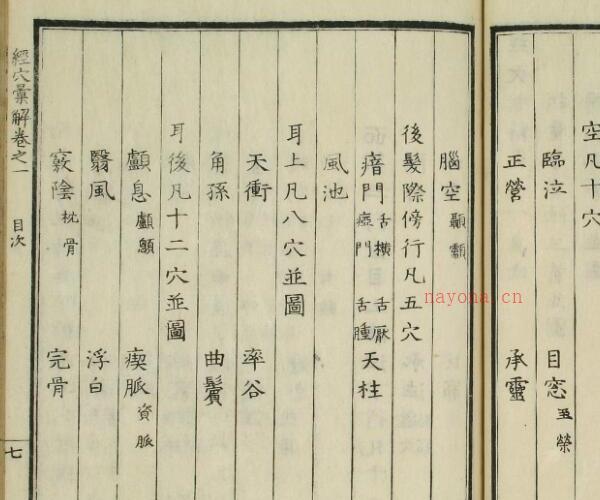 空凡十穴
臨泣 目窓 玉榮
正營 承靈
腦空 顳顬
後髮際傍行凡五穴
瘖門 舌橫 舌厭 瘂門 舌腫 天柱
風池
耳上凡八穴並圖
天衝 率谷
角孫 曲鬢
耳後凡十二穴並圖
顱息 顱顖 瘈脈 資脈
翳風 浮白
竅陰 枕骨 完骨
經穴彙解卷之一 目次 七
nayona.cn